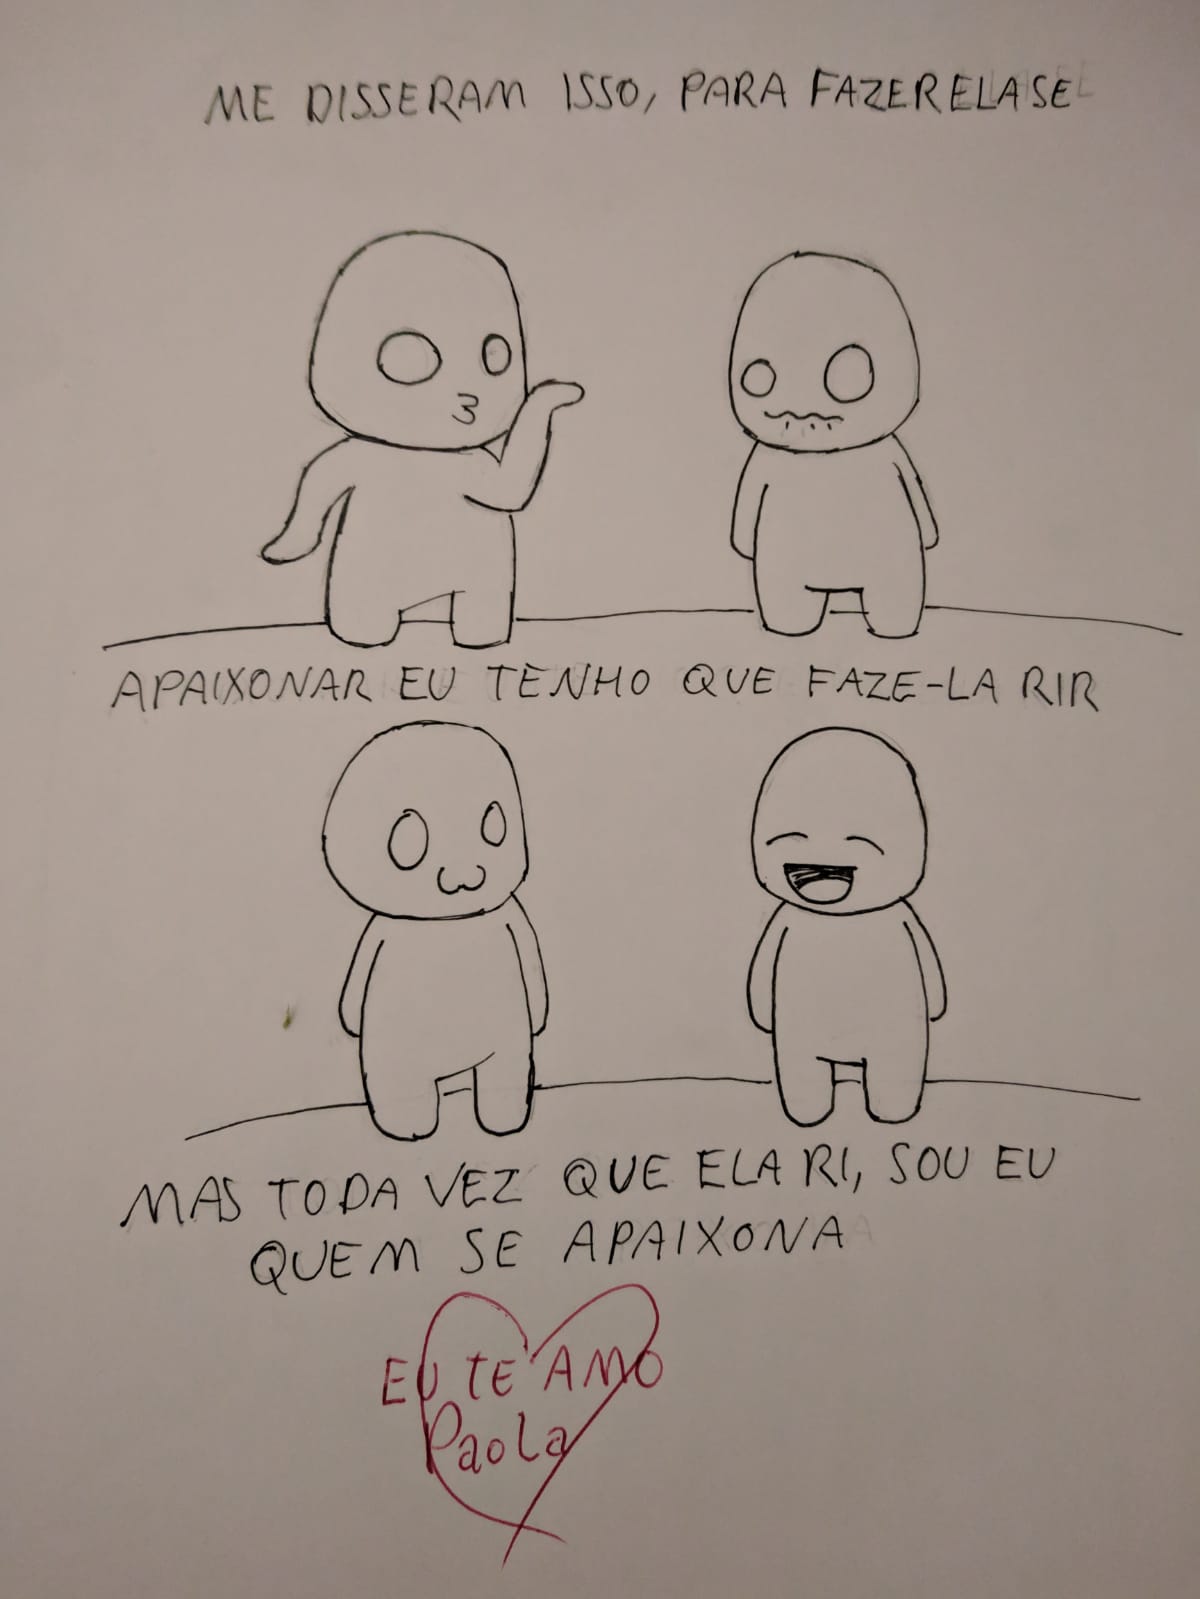 ME DISSERAM ISSO, PARA FAZER ELA SE
APAIXONAR EU TENHO QUE FAZE-LA RIR
MAS TODA VEZ QUE ELA RI, SOU EU
QUEM SE APAIXONA
EU TE AMO
Paola